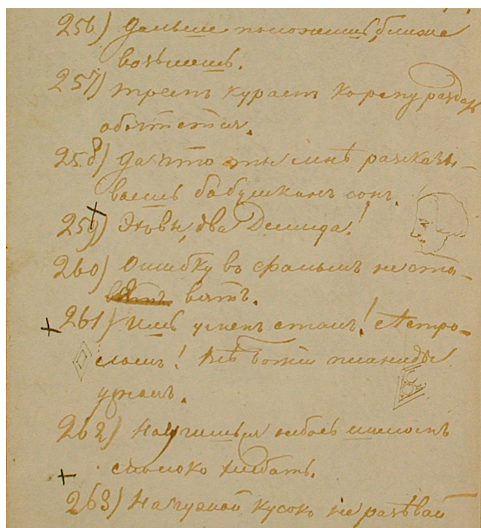 256) Дальше положишь, ближе
возьмешь.
257)
258) Да что ты мнѣ разсказы-
ваешь бабушкинъ сонъ.
259) Эхъ вы, два Демида!
260) Ошибку во фальшь не ста-
вятъ.
261) Ишь уменъ сталъ! Астро-
ломъ! Всѣ божіи планиды
узналъ.
262) Научишься небось
молоко хлебать.
263) На чужой кусокъ не разѣвай